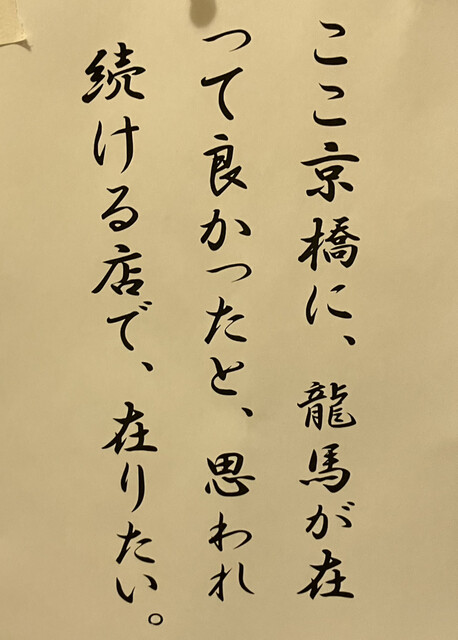 ここ京橋に、龍馬が在
って良かったと、思われ
続ける店で、在りたい。